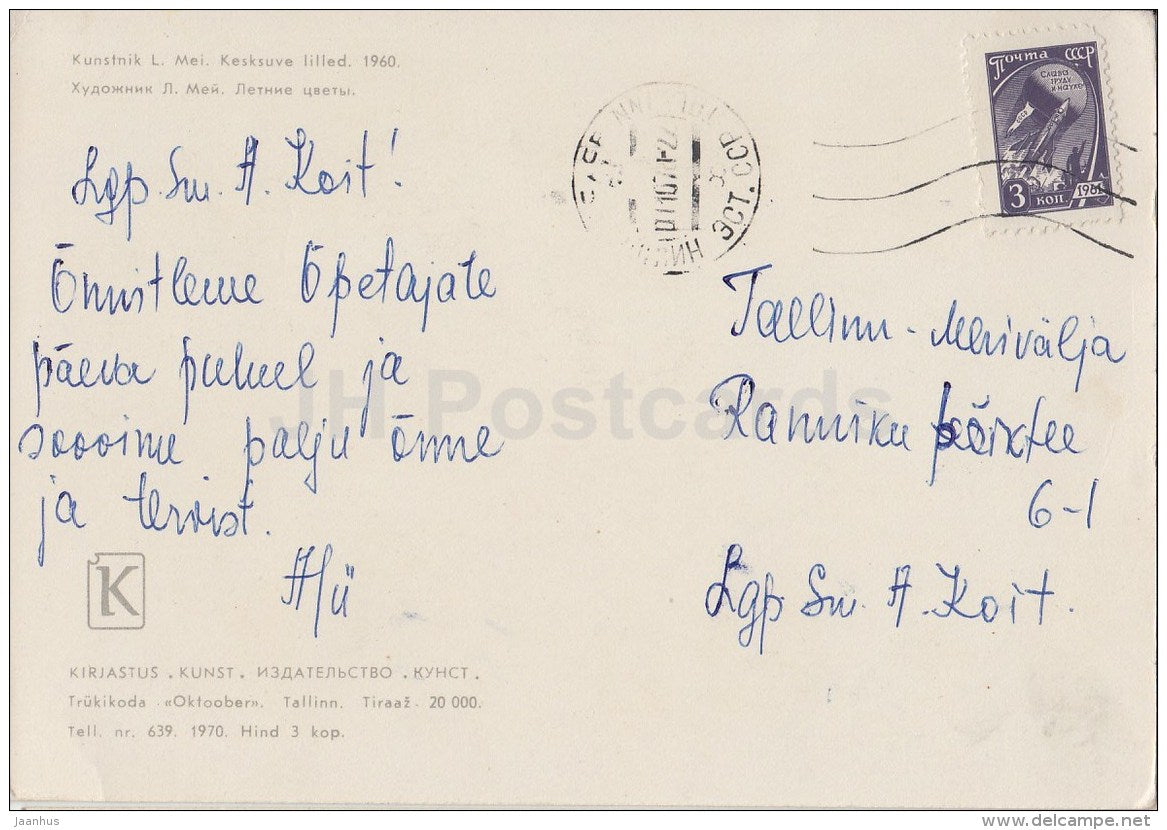 Kunstnik L. Mei. Kesksuve lilled. 1960.
Художник Л. Мей. Летние цветы.
Почта СССР
Слава
труду
и науке
3 коп. 1961
ЭСТ. ССР
Lgp. Sm. A. Koit!
Õnnitleme Õpetajate
päeva puhul ja
soovime palju õnne
ja tervist.
Tallinn-Merivälja
Ranniku põiktee
6-1
Lgp. Sm. A. Koit.
JH Postcards
K
KIRJASTUS . KUNST . ИЗДАТЕЛЬСТВО . КУНСТ .
Trükikoda «Oktoober». Tallinn. Tiraaž 20 000.
Tell. nr. 639. 1970. Hind 3 kop.
Jaanhus
www.delcampe.net